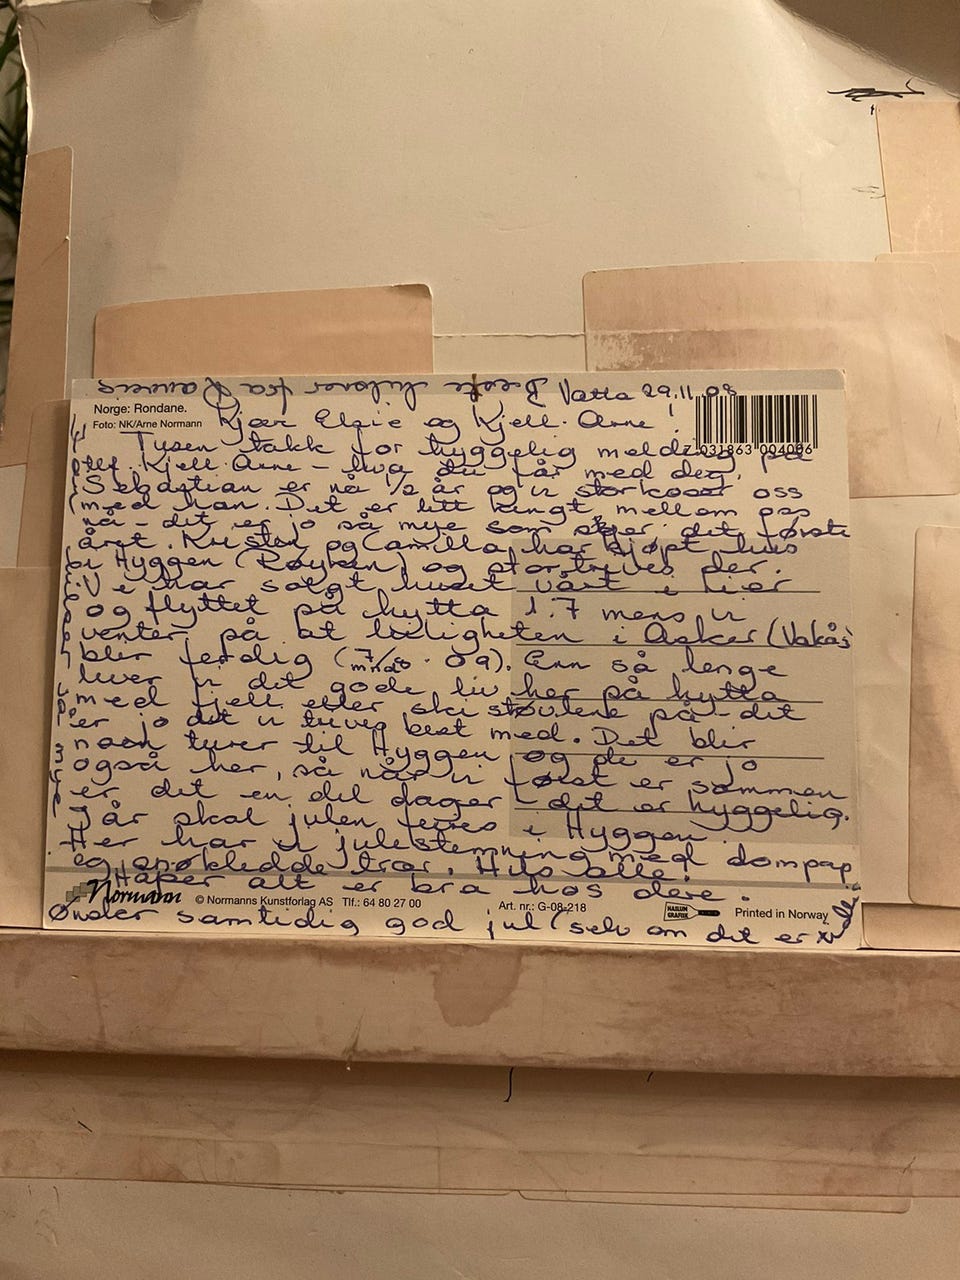 Vatta 29.11.08
Norge: Rondane.
Foto: NK/Arne Normann
Kjær Elsie og Kjell-Arne!
7 031863 004096
Tusen takk for hyggelig melding på
tlf. Kjell-Arne - hva du får med deg.
Sebastian er nå 1/2 år og vi storkoser oss
med han. Det er litt langt mellom oss
nå - det er jo så mye som skjer det første
året. Kristen og Camilla har kjøpt hus
i Hyggen (Røyken) og stortrives der.
Vi har solgt huset vårt i Lier
og flyttet på hytta 1.7 mens vi
venter på at leiligheten i Asker (Vakås)
blir ferdig (09). Enn så lenge
lever vi det gode liv her på hytta
med fjell eller ski støvlene på - det
er jo det vi trives best med. Det blir
noen turer til Hyggen og de er jo
også her, så når vi først er sammen
er det en del dager - det er hyggelig.
I år skal julen feires i Hyggen.
Her har vi julestemning med dompap
og snøkledde trær. Hils alle!
Håper alt er bra hos dere.
Normann
© Normanns Kunstforlag AS Tlf.: 64 80 27 00
Art. nr.: G-08-218
HASLUM GRAFISK
Printed in Norway
Ønsker samtidig god jul (selv om det er
så mye
Beste hilsner fra